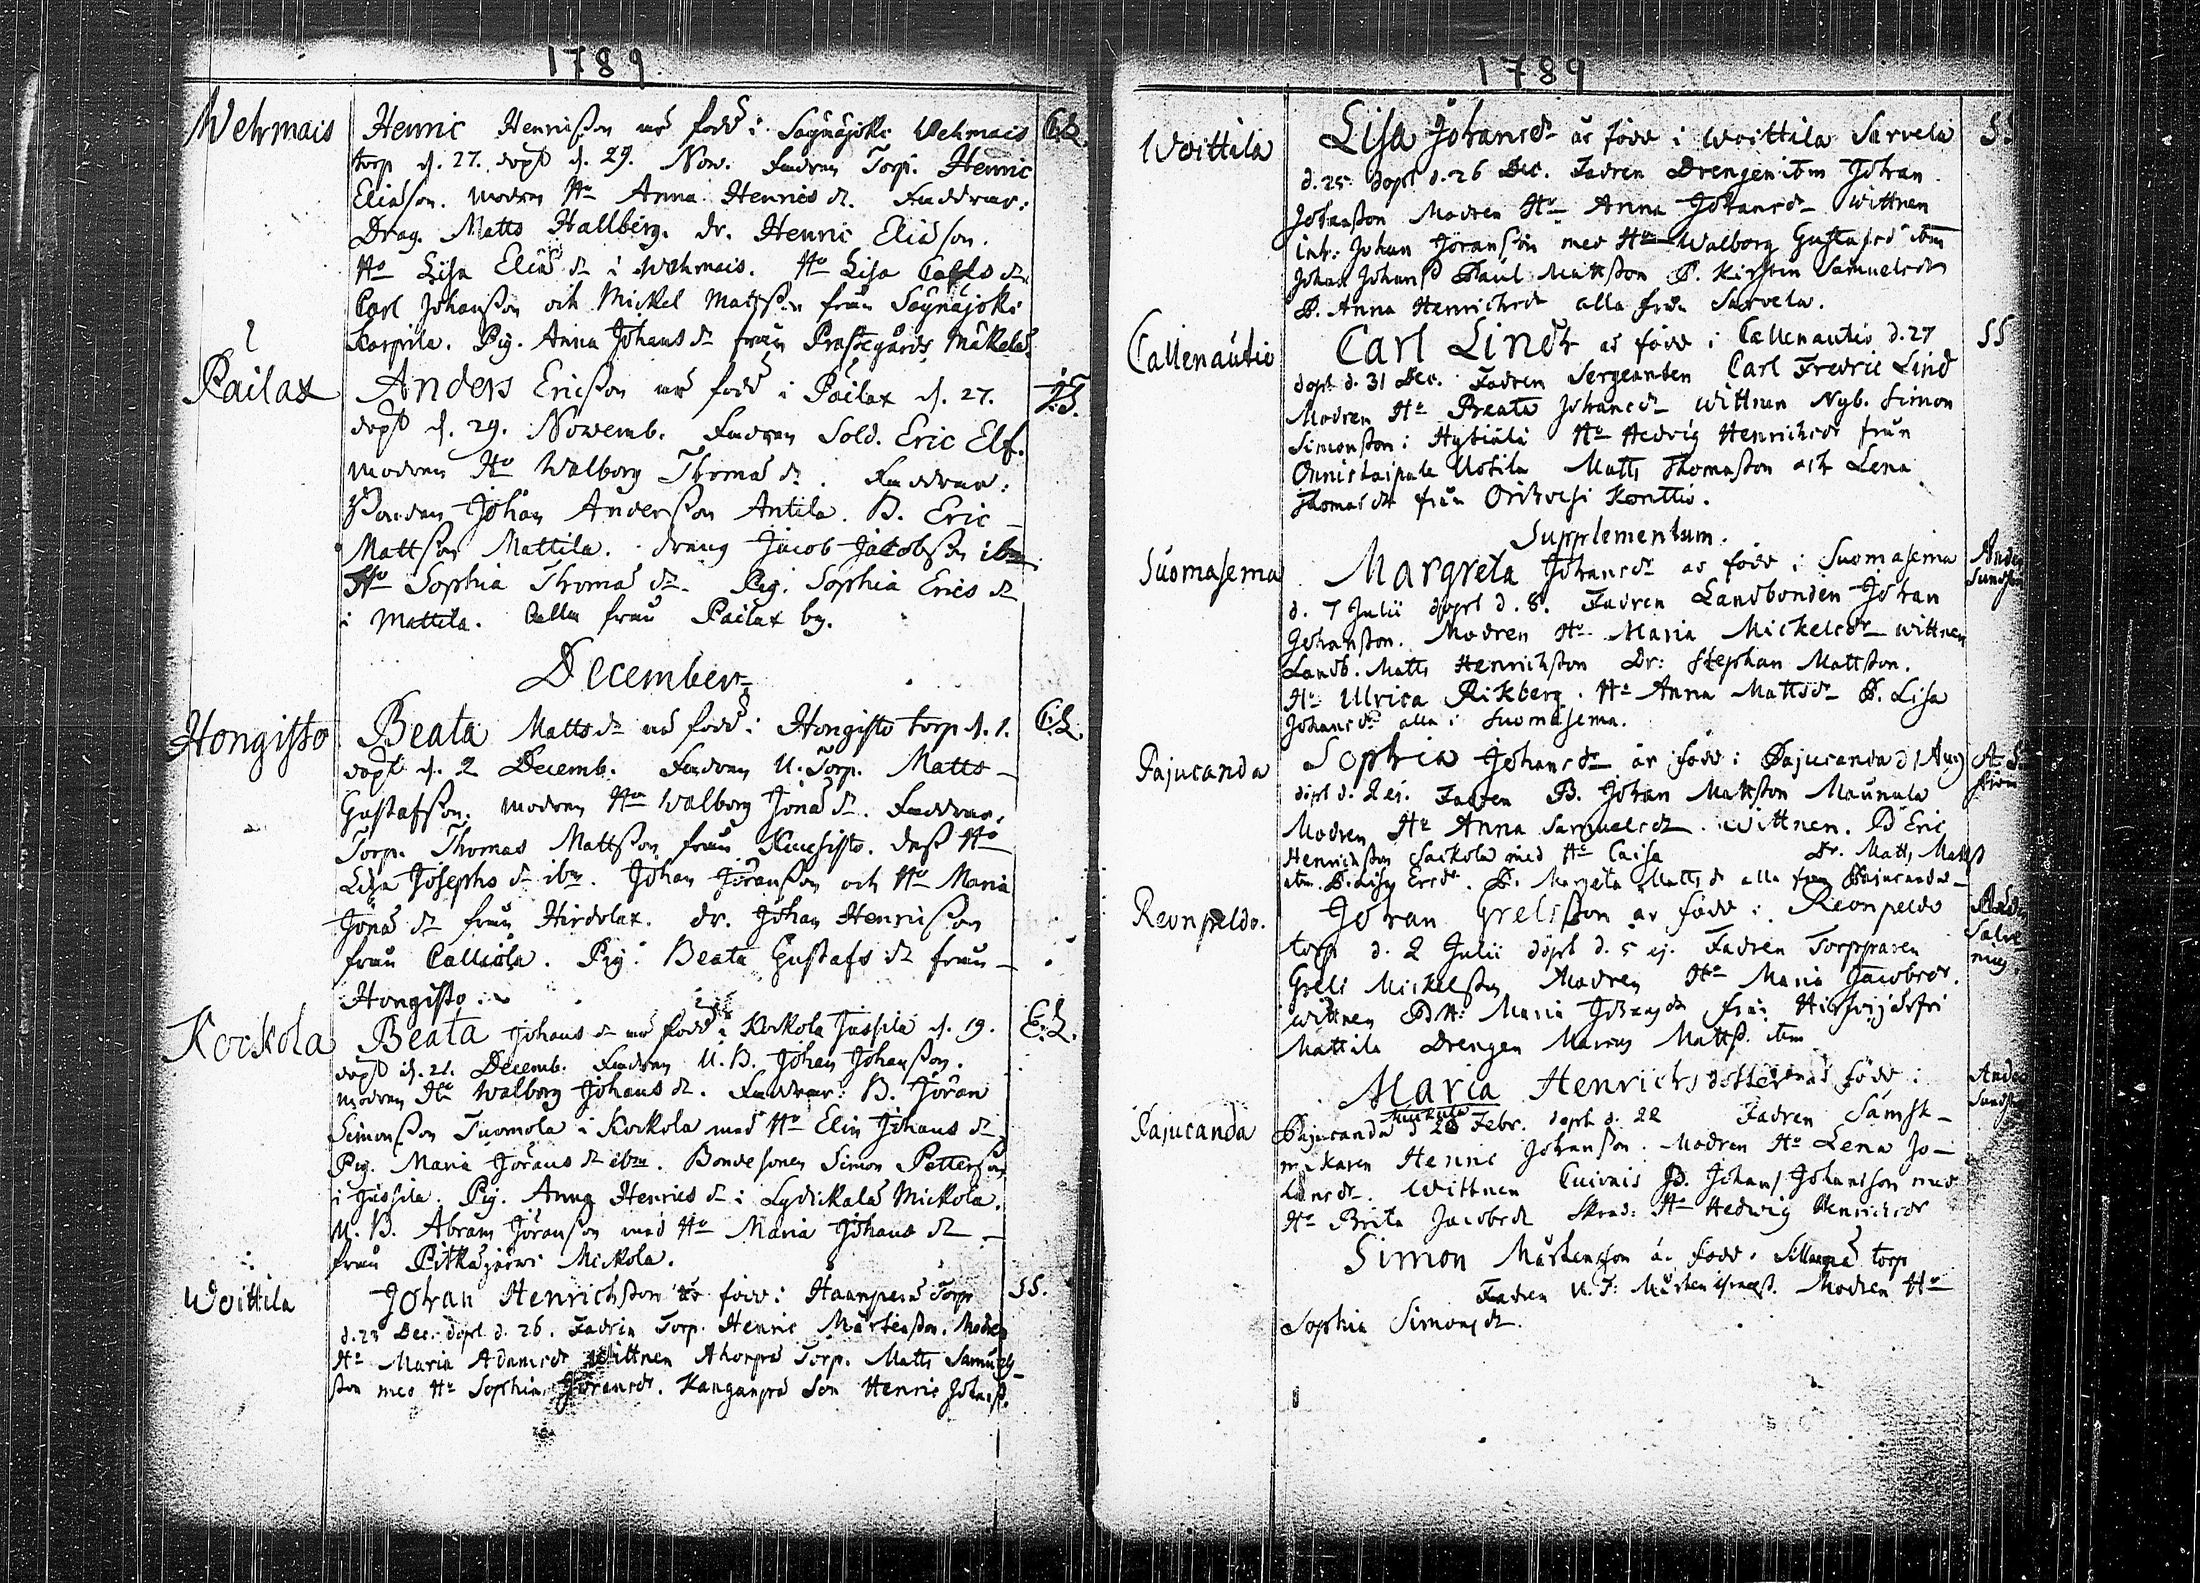 1789
Wehrmais Henric Henrisson är född i Säynäjoki Wehmais C.L.
torp d. 27. döpt d. 29. Nov. Fadren Torp. Henric
Eliæson. modren Ho Anna Henrics dr. Faddrar:
Drag. Matts Hallberg. dr. Henric Eliæson.
Ho Lisa Eliæ dr i Wehmais. Ho Lisa Carls dr
Carl Johansson och Mickel Mattsson från Säynäjoki
Korpila. Pig. Anna Johans dr från Prästegårds Mäkelä.
Pailax Anders Ericsson är född i Päilax d. 27.
döpt d. 29. Novemb. Fadren Sold. Eric Elf.
modren Ho Walborg Thomæ dr. Faddrar:
Bonden Johan Andersson Antila. B. Eric
Mattsson Mattila. dräng Jacob Jacobsson ibm.
Ho Sophia Thomæ dr. Pig. Sophia Erics dr
i Mattila. alla från Päilax by.
December
Hongisto Beata Matts dr är född i Hongisto torp d. 1. C.L.
döpt d. 2 Decemb. Fadren U. Torp. Matts
Gustafson. modren Ho Walborg Jonæ dr. Faddrar.
Torp. Thomas Mattsson från. dess Ho
Lisa Josephs dr ibm. Johan Jöransson och Ho Maria
Jonæ dr från Hirdolax. dr. Johan Henrisson
från Calliola. Pig. Beata Gustafs dr från
Hongisto.
Kockola Beata Johans dr är född i Kockola Jussila d. 19. C.L.
döpt d. 21. Decemb. Fadren U. B. Johan Johansson.
modren Ho Walborg Johans dr. Faddrar: B. Jöran
Simonsson Tuomola i Kockola med Ho Elin Johans dr
Pig. Maria Jörans dr ibm. Bondesonen Simon Pettersson
i Jussila. Pig. Anna Henrics dr i Lydickala Mickola.
U. B. Abram Jöransson med Ho Maria Johans dr
från Pitkäjärvi Mickola.
Woittila Johan Henrichsson är född i Haanperä Torp SS.
d. 23 Dec. döpt d. 26. Fadren Torp. Henric Mårtensson. Modren
Ho Maria Adamsdr Wittnen Ahonpää Torp. Matts Samuels
son med Ho Sophia Jöransdr. Kanganpää Son Henric Johanss.
1789
Woittila Lisa Johansdr är född i Woittila Sarvela
d. 25 döpt d. 26 Dec. Fadren Drengen ibm Johan
Johansson Modren Ho Anna Johansdr Wittnen
inh. Johan Jöransson med Ho Walborg Gustafsdr ibm
Johan Johanss Paul Mattsson P. Kirstin Samuelsdr
P. Anna Henrichsdr alla från Sarvela.
Callenautio Carl Lindr är född i Callenautio d. 27 SS
döpt d. 31 Dec. Fadren Sergeanten Carl Fredric Lind
Modren Ho Beata Johansdr Wittnen Nyb. Simon
Simonsson i Hytiälä Ho Hedvig Henrichsdr från
Onnistaipale Uotila Matts Thomasson och Lena
Thomasdr från Orihvesi Konttio.
Supplementum.
Suomasema Margreta Johansdr är född i Suomasema
d. 7 Julii döpt d. 8. Fadren Landbonden Johan
Johansson. Modren Ho Maria Mickelsdr Wittnen
Landb. Matts Henrichsson Dr: Stephan Mattsson.
Ho Ulrica Rikberg. Ho Anna Mattsdr P. Lisa
Johansdr alla i Suomasema.
Pajucanda Sophia Johansdr är född i Pajucanda d 1 Aug
döpt d. 2 ej. Fadren B. Johan Mattsson Maunula
Modren Ho Anna Samuelsdr. Wittnen. B Eric
Henrichsson Sackola med Ho Caisa Dr. Matts Mattss
ibm. P. Lisa Ersdr. P. Margeta Mattsdr alla från Pajucanda
Reonpeldo. Johan Grelsson är född i Reonpeldo
torp d. 2 Julii döpt d. 5 ej. Fadren Torpparen
Grels Mickelsson Modren Ho Maria Jacobsdr.
Wittnen Maria från
Mattila Drengen Marcus Mattss. ibm
Maria Henrichsdotter är född i
Pajucanda Pajucanda d 20 Febr. döpt d. 22 Fadren Sämsk
makaren Henric Johansson. Modren Ho Lena Jo
hansdr. Wittnen B. Johan Johansson med
Ho Brita Jacobsdr Ho Hedwig Henrichsdr
Simon Mårtensson är född torp
Fadren U. T. Mårten Modren Ho
Sophia Simonsdr.